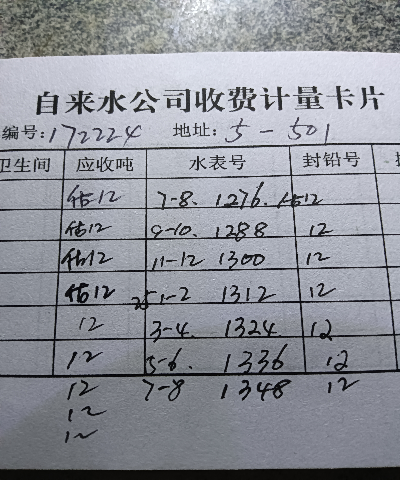 自来水公司收费计量卡片
编号: 172224 地址: 5-501
卫生间 应收吨 水表号 封铅号
估12 7-8. 1276. 估12
估12 9-10. 1288 12
估12 11-12 1300 12
估12 25 1-2 1312 12
12 3-4. 1324 12
12 5-6. 1336 12
12 7-8 1348 12
12
12